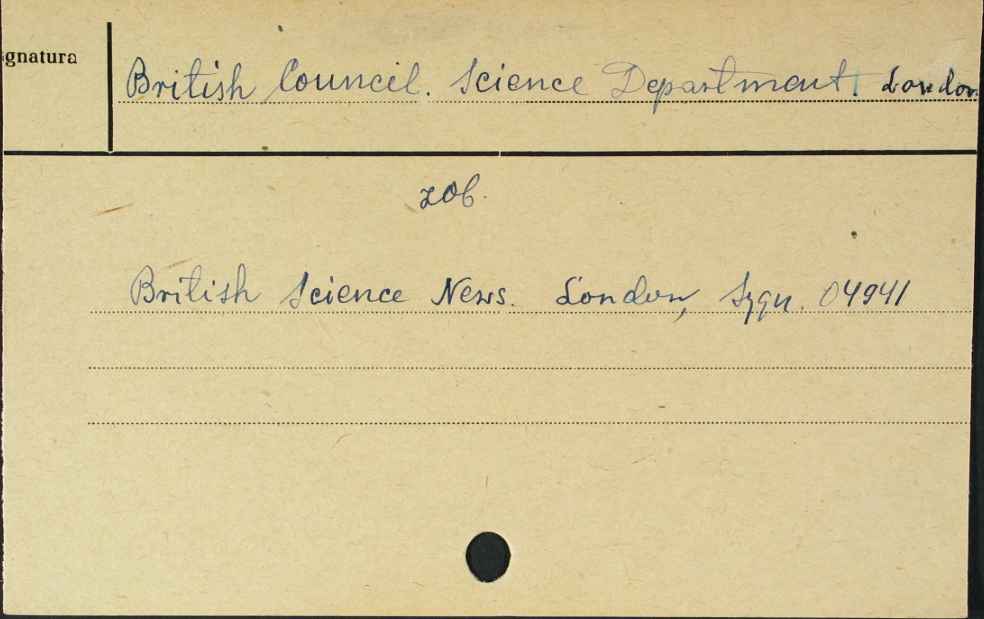 gnatura
British Council. Science Department. London
zob.
British Science News. London, Sygn. 04941